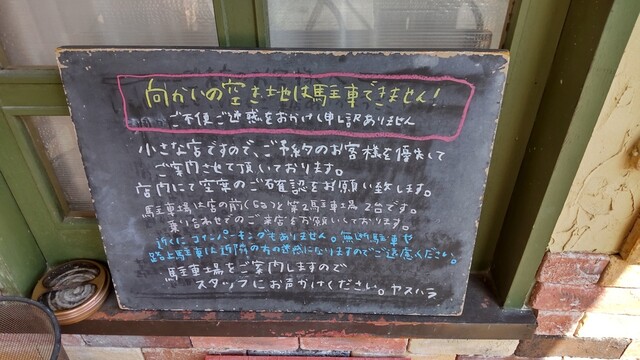 向かいの空き地は駐車できません!
ご不便ご迷惑をおかけし申し訳ありません
小さな店ですので、ご予約のお客様を優先して
ご案内させて頂いております。
店内にて空席のご確認をお願い致します。
駐車場は店の前と第2駐車場2台です。
乗り合わせでのご来店をお願いしております。
近くにコインパーキングもありません。無断駐車や
路上駐車は近隣の方の迷惑になりますのでご遠慮ください。
駐車場をご案内しますので
スタッフにお声がけください。ヤスハラ